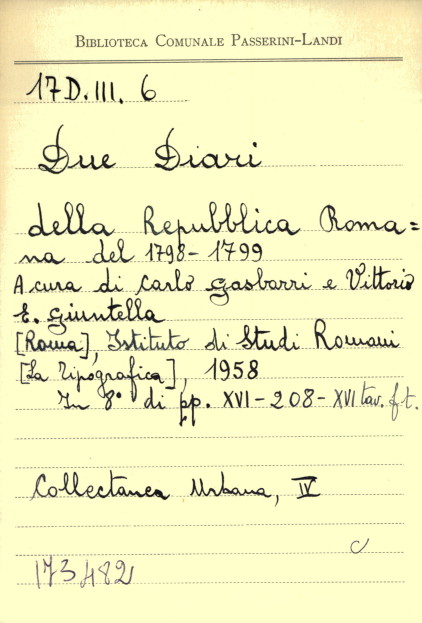 BIBLIOTECA COMUNALE PASSERINI-LANDI
17D.III. 6
Due Diari
della Repubblica Roma=
na del 1798-1799
A cura di Carlo Gasbarri e Vittorio
E. Giuntella
[Roma], Istituto di Studi Romani
[La Tipografica], 1958
In 8° di pp. XVI-208-XVI tav. f.t.
Collectanea Urbana, IV
C
173482